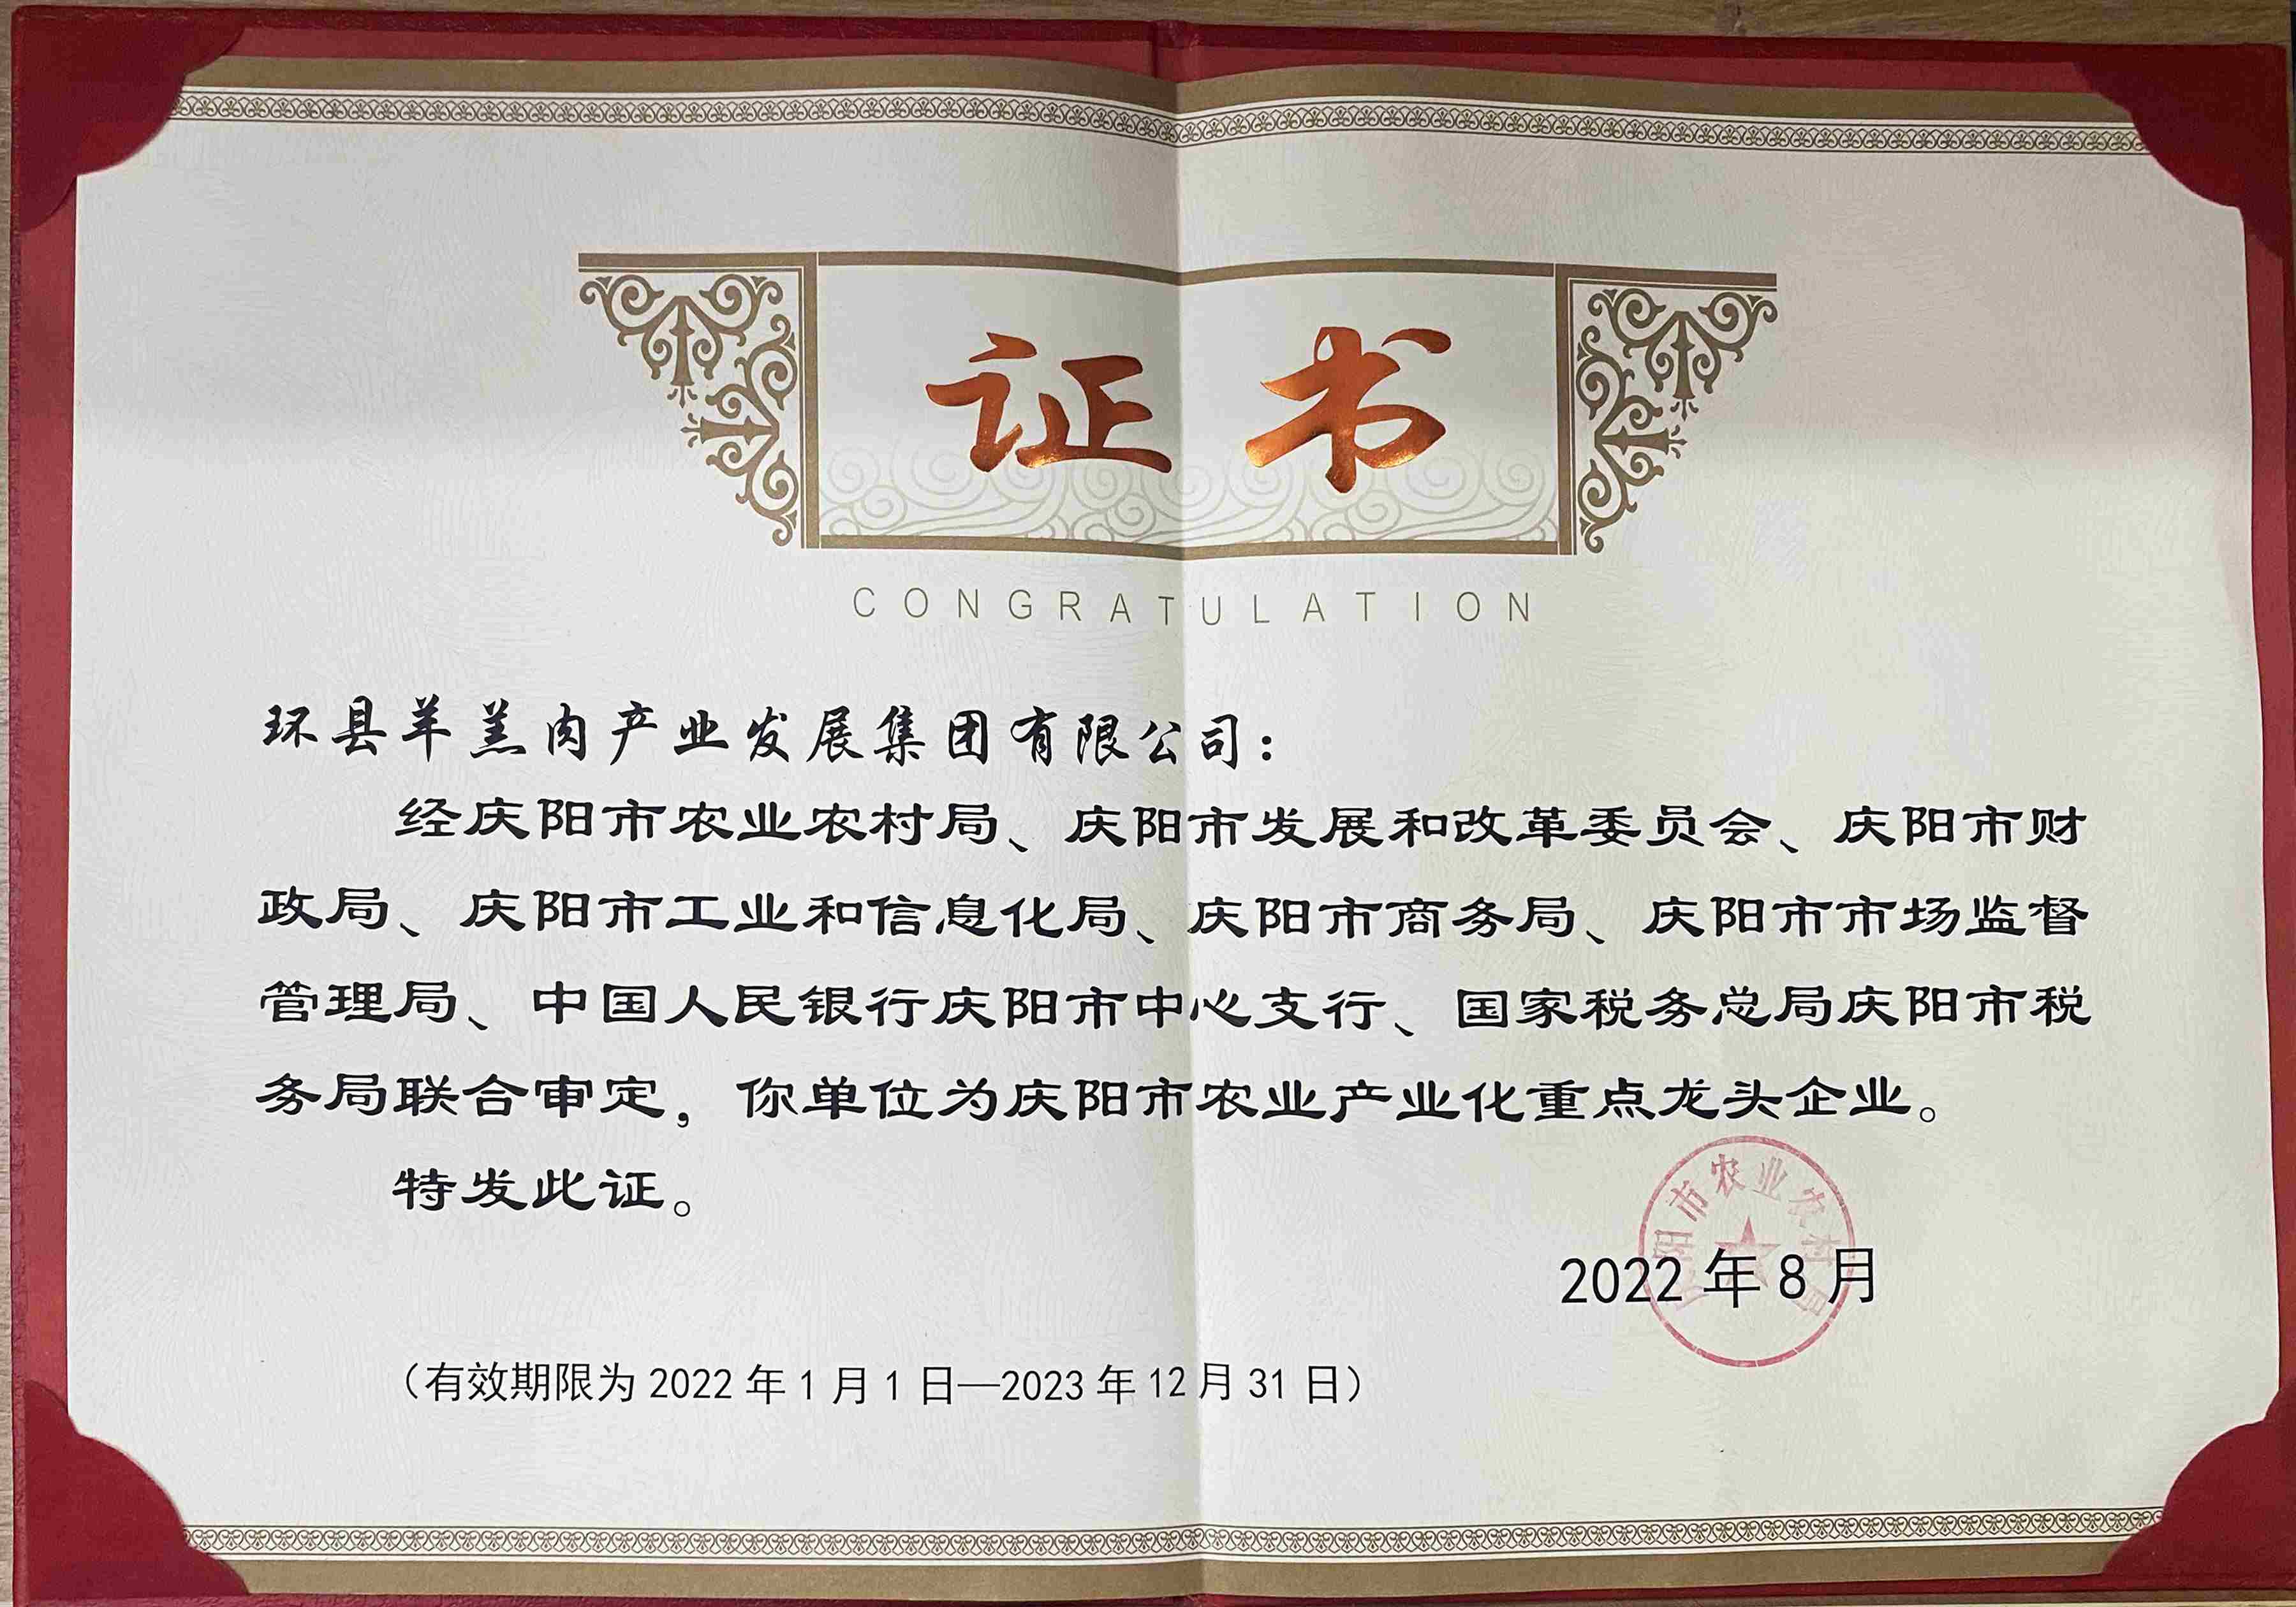 证书
CONGRATULATION
环县羊羔肉产业发展集团有限公司：
经庆阳市农业农村局、庆阳市发展和改革委员会、庆阳市财
政局、庆阳市工业和信息化局、庆阳市商务局、庆阳市市场监督
管理局、中国人民银行庆阳市中心支行、国家税务总局庆阳市税
务局联合审定，你单位为庆阳市农业产业化重点龙头企业。
特发此证。
庆阳市农业农村局
2022年8月
（有效期限为2022年1月1日—2023年12月31日）